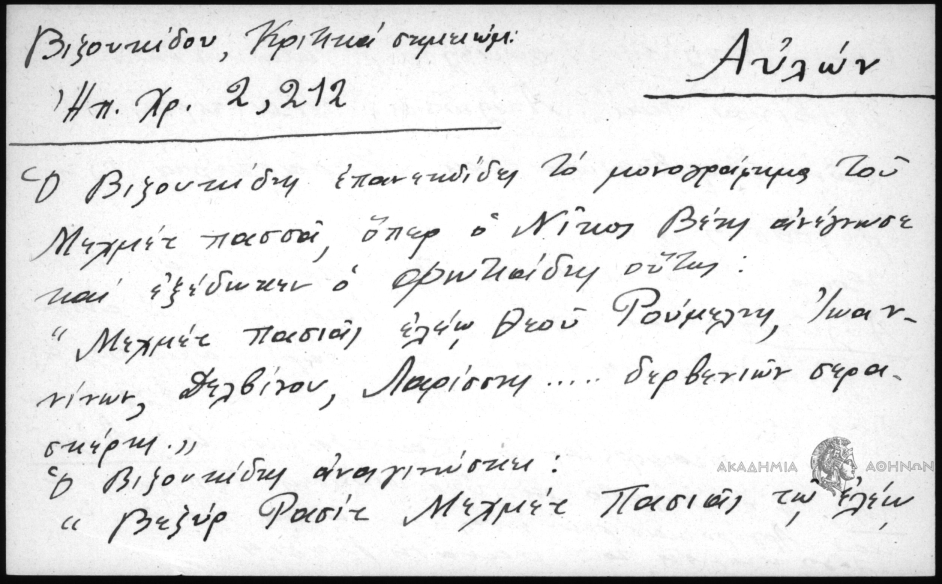 Βιζουκίδου, Κριτικαί σημειώμ:
Αὐλών
Ἠπ. Χρ. 2, 212
Ὁ Βιζουκίδης ἐπανεκδίδει τό μονογράφημα τοῦ
Μεχμέτ πασσᾶ, ὅπερ ὁ Νῖκος Βέης ἀνέγνωσε
καί ἐξέδωκεν ὁ Φωτιάδης οὕτως:
"Μεχμέτ πασιᾶς ἐλέῳ Θεοῦ Ρούμελης, Ἰωαν-
νίνων, Δελβίνου, Λαρίσσης ..... δερβενιῶν σερα-
σκέρης."
Ὁ Βιζουκίδης ἀναγινώσκει:
"Βεζύρ Ρασίτ Μεχμέτ Πασιᾶς τῷ ἐλέῳ
ΑΚΑΔΗΜΙΑ ΑΘΗΝΩΝ